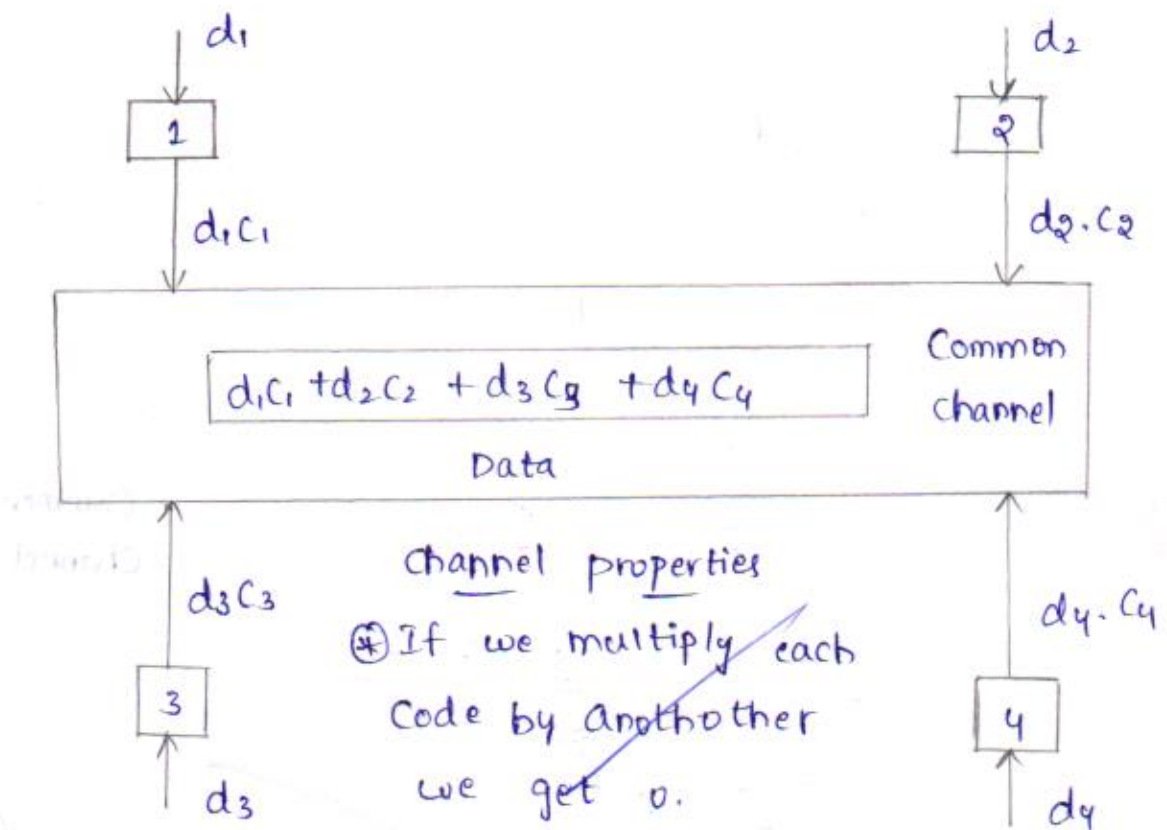 d1 d2
1 2
d1C1 d2.C2
d1C1 +d2C2 +d3C3 +d4C4
Common
channel
Data
Channel properties
d3C3
d4.C4
* If we multiply each
3
Code by Anothother
4
we get 0.
d3 d4